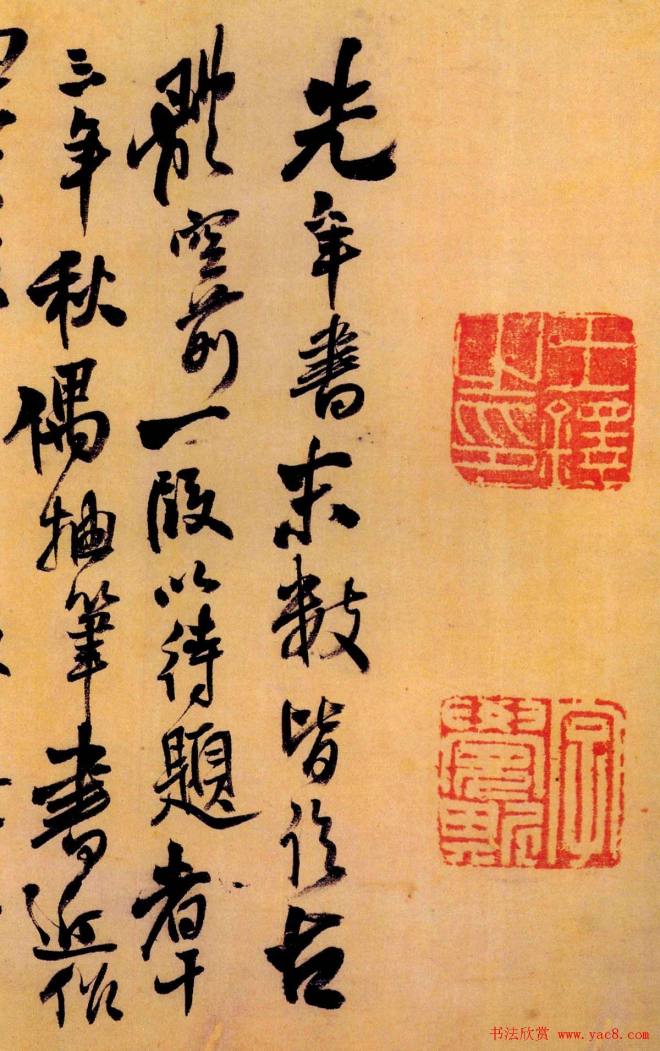 先年書末數皆臨古
體空前一段以待題者十
三年秋偶抽筆書近
王鐸之印
字覺斯
书法欣赏 www.yac8.com